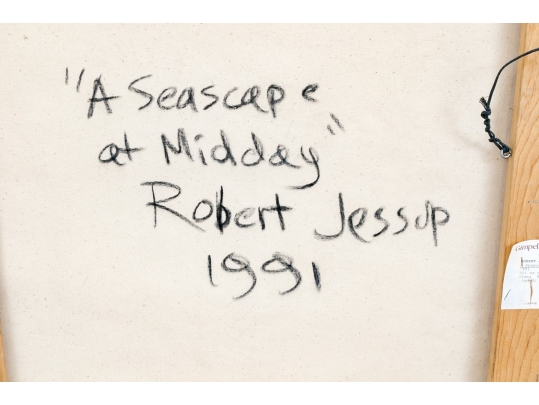 "A Seascape
at Midday"
Robert Jessup
1991
Gimpel